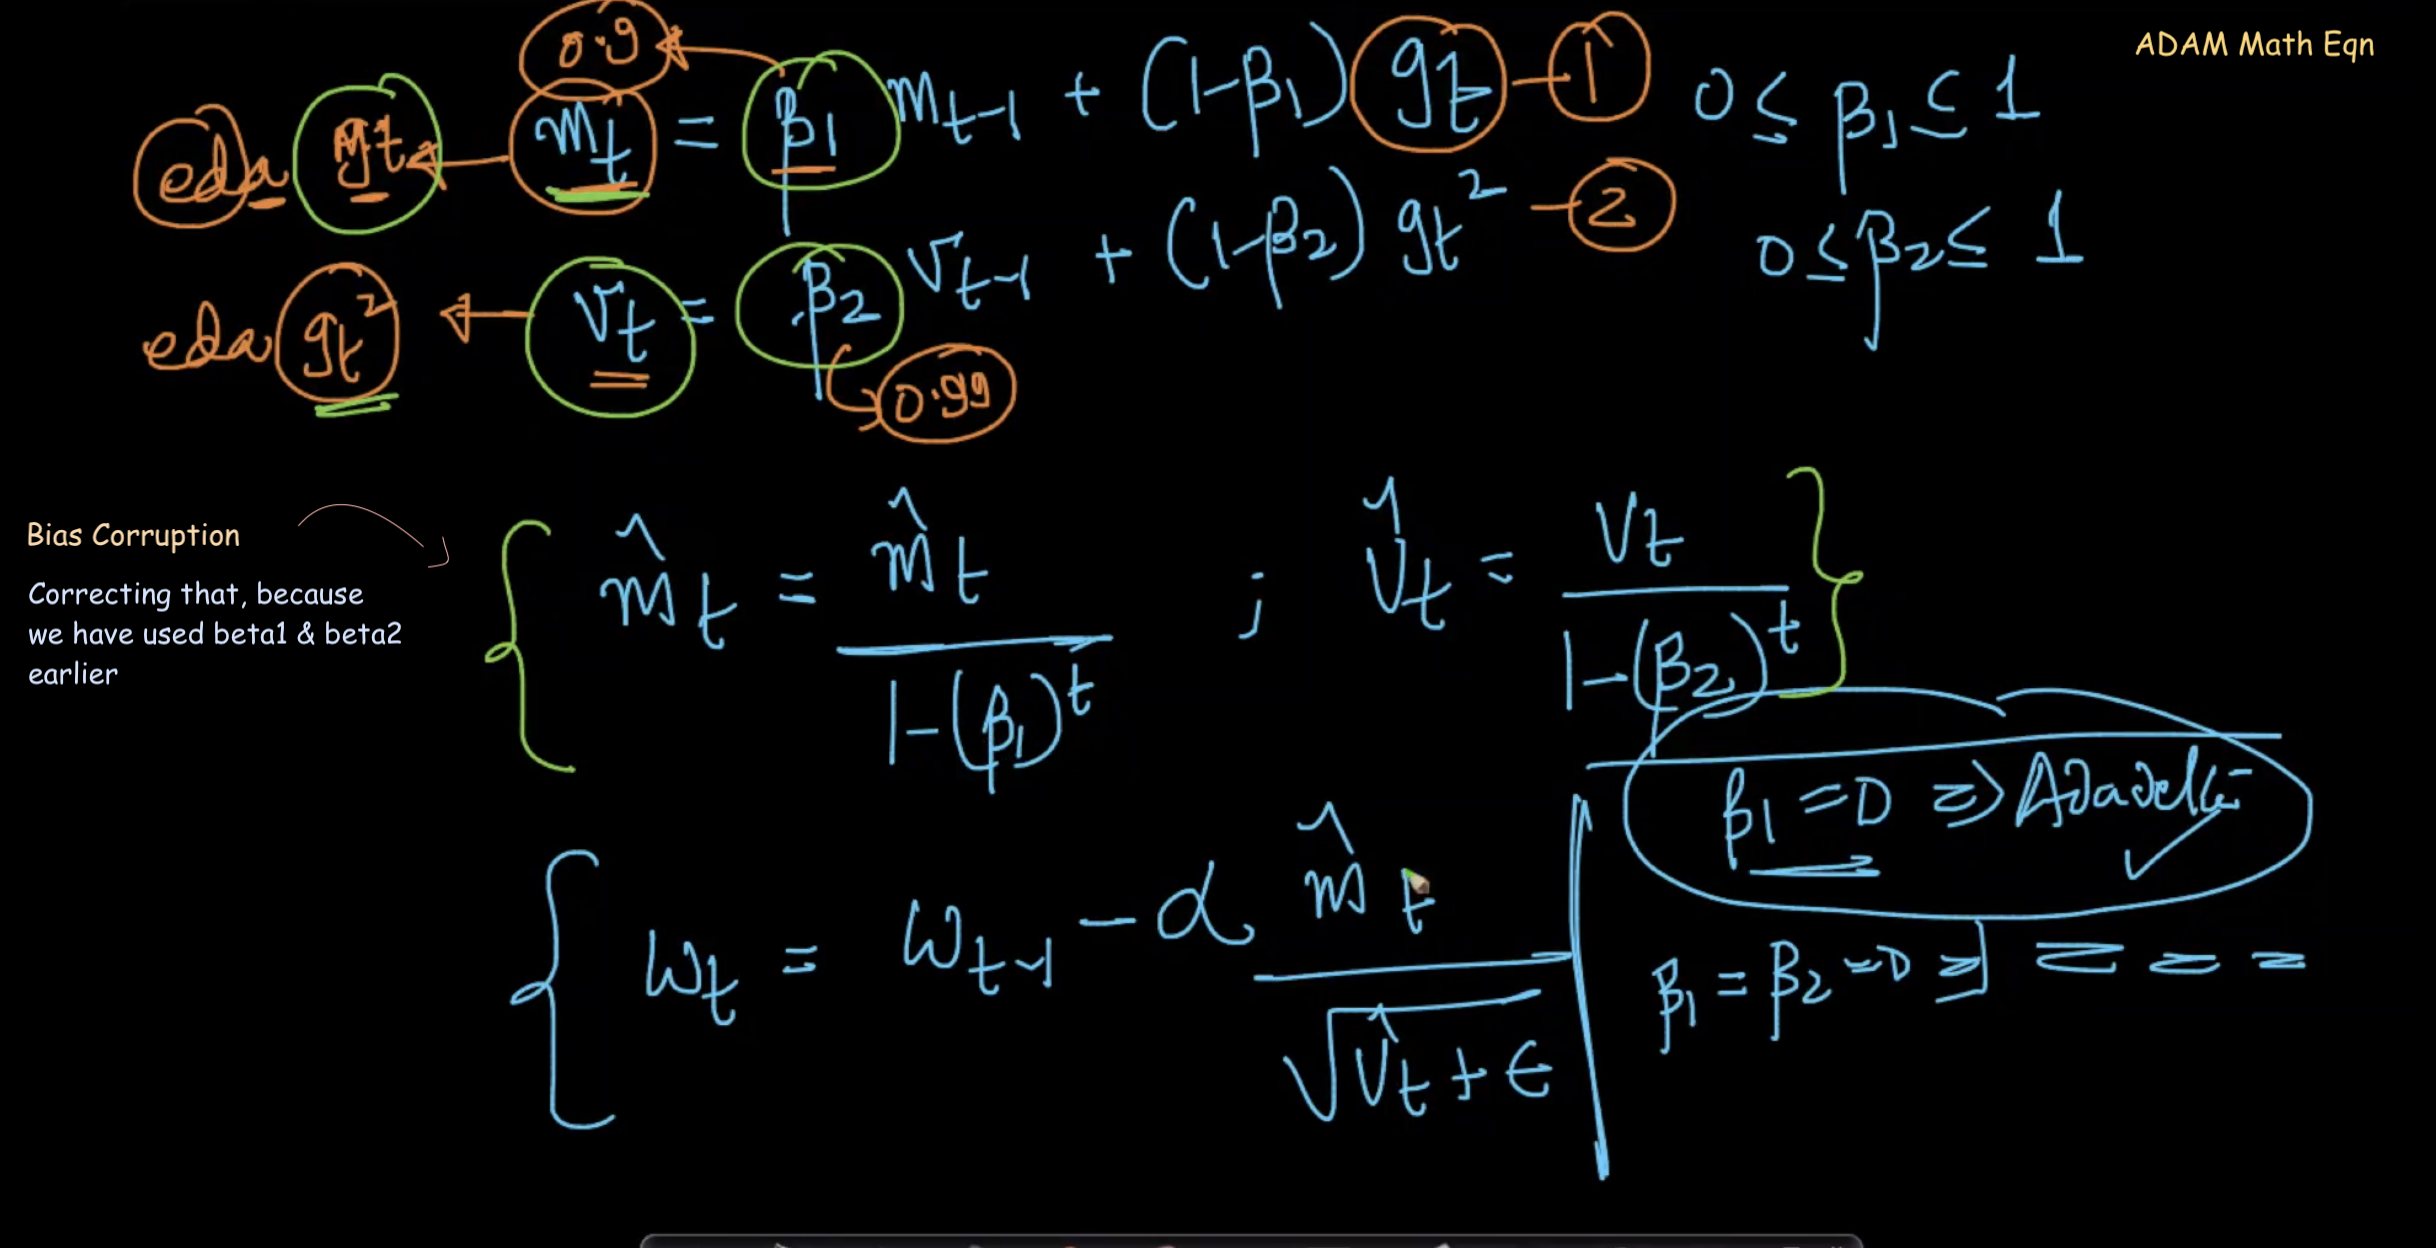 ADAM Math Eqn
0.9
eda gt ← mt = β1 mt-1 + (1-β1) gt - 1 0 ≤ β1 ≤ 1
eda gt² ← vt = β2 vt-1 + (1-β2) gt² - 2 0 ≤ β2 ≤ 1
0.99
Bias Corruption
Correcting that, because
we have used beta1 & beta2
earlier
m̂t = m̂t / 1-(β1)^t ; v̂t = vt / 1-(β2)^t
β1 = 0 => Adadelta
wt = wt-1 - α m̂t / √(v̂t + ϵ)
β1 = β2 = 0 =>